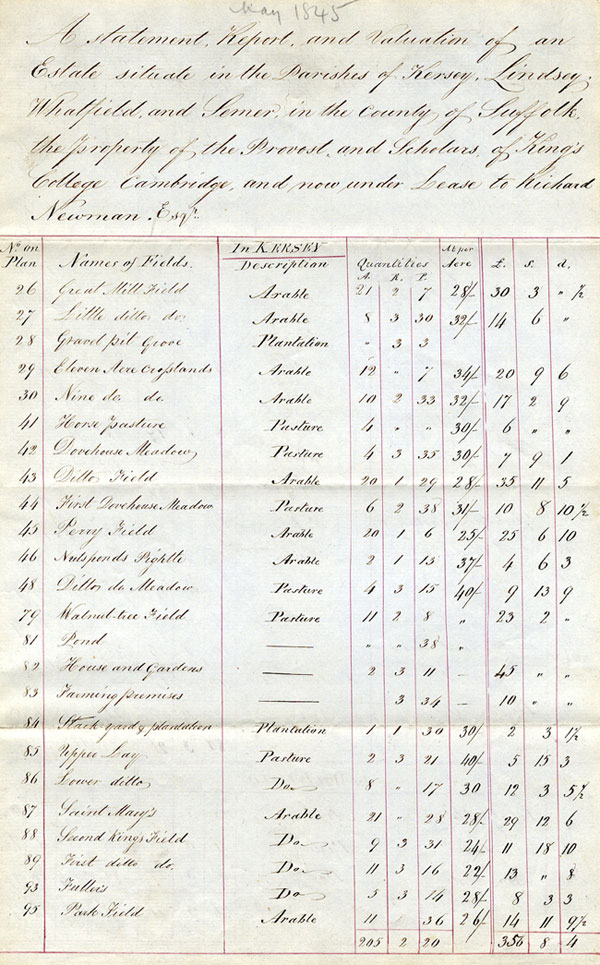 May 1845
A Statement, Report, and Valuation of an
Estate situate in the Parishes of Kersey, Lindsey,
Whatfield, and Semer, in the County of Suffolk,
the property of the Provost, and Scholars, of King's
College Cambridge, and now under Lease to Richard
Newman Esqr.
No. on Plan Names of Fields. In KERSEY Description Quantities A. R. P. At per Acre £. s. d.
26 Great Mill Field Arable 21 2 7 28/- 30 3 " ½
27 Little ditto do. Arable 8 3 30 32/- 14 6 "
28 Gravel pit Grove Plantation " 3 3
29 Eleven Acre Crosslands Arable 12 " 7 34/- 20 9 6
30 Nine do. do. Arable 10 2 33 32/- 17 2 9
41 Horse Pasture Pasture 4 " " 30/- 6 " "
42 Dovehouse Meadow Pasture 4 3 35 30/- 7 9 1
43 Ditto Field Arable 20 1 29 28/- 35 11 5
44 First Dovehouse Meadow Pasture 6 2 38 31/- 10 8 10½
45 Perry Field Arable 20 1 6 25/- 25 6 10
46 Nutsponds Pightle Arable 2 1 13 37/- 4 6 3
48 Ditto do Meadow Pasture 4 3 15 40/- 9 13 9
79 Walnut-tree Field Pasture 11 2 8 " 23 2 "
81 Pond — " " 38 "
82 House and Gardens — 2 3 11 – 45 " "
83 Farming premises — 3 34 – 10 " "
84 Stack yard & plantation Plantation 1 1 30 30/- 2 3 1½
85 Upper Lay Pasture 2 3 21 40/- 5 15 3
86 Lower ditto Do 8 " 17 30 12 3 5½
87 Saint Mary's Arable 21 " 28 28/- 29 12 6
88 Second Kings Field Do 9 3 31 24/- 11 18 10
89 First ditto do. Do 11 3 16 22/- 13 " 8
93 Fullers Do 5 3 14 28/- 8 3 3
95 Park Field Arable 11 36 26/- 14 11 9½
205 2 20 356 8 4